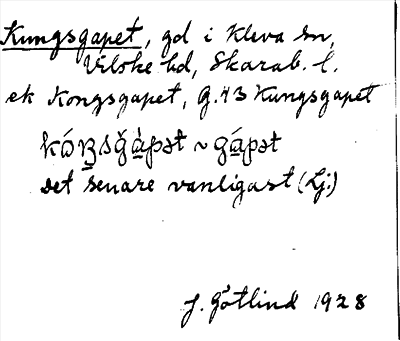 Kungsgapet, gd i Kleva sn,
Vilske hd, Skarab. l.
ek Kongsgapet, G.43 Kungsgapet
det senare vanligast (Lj.)
J. Götlind 1928